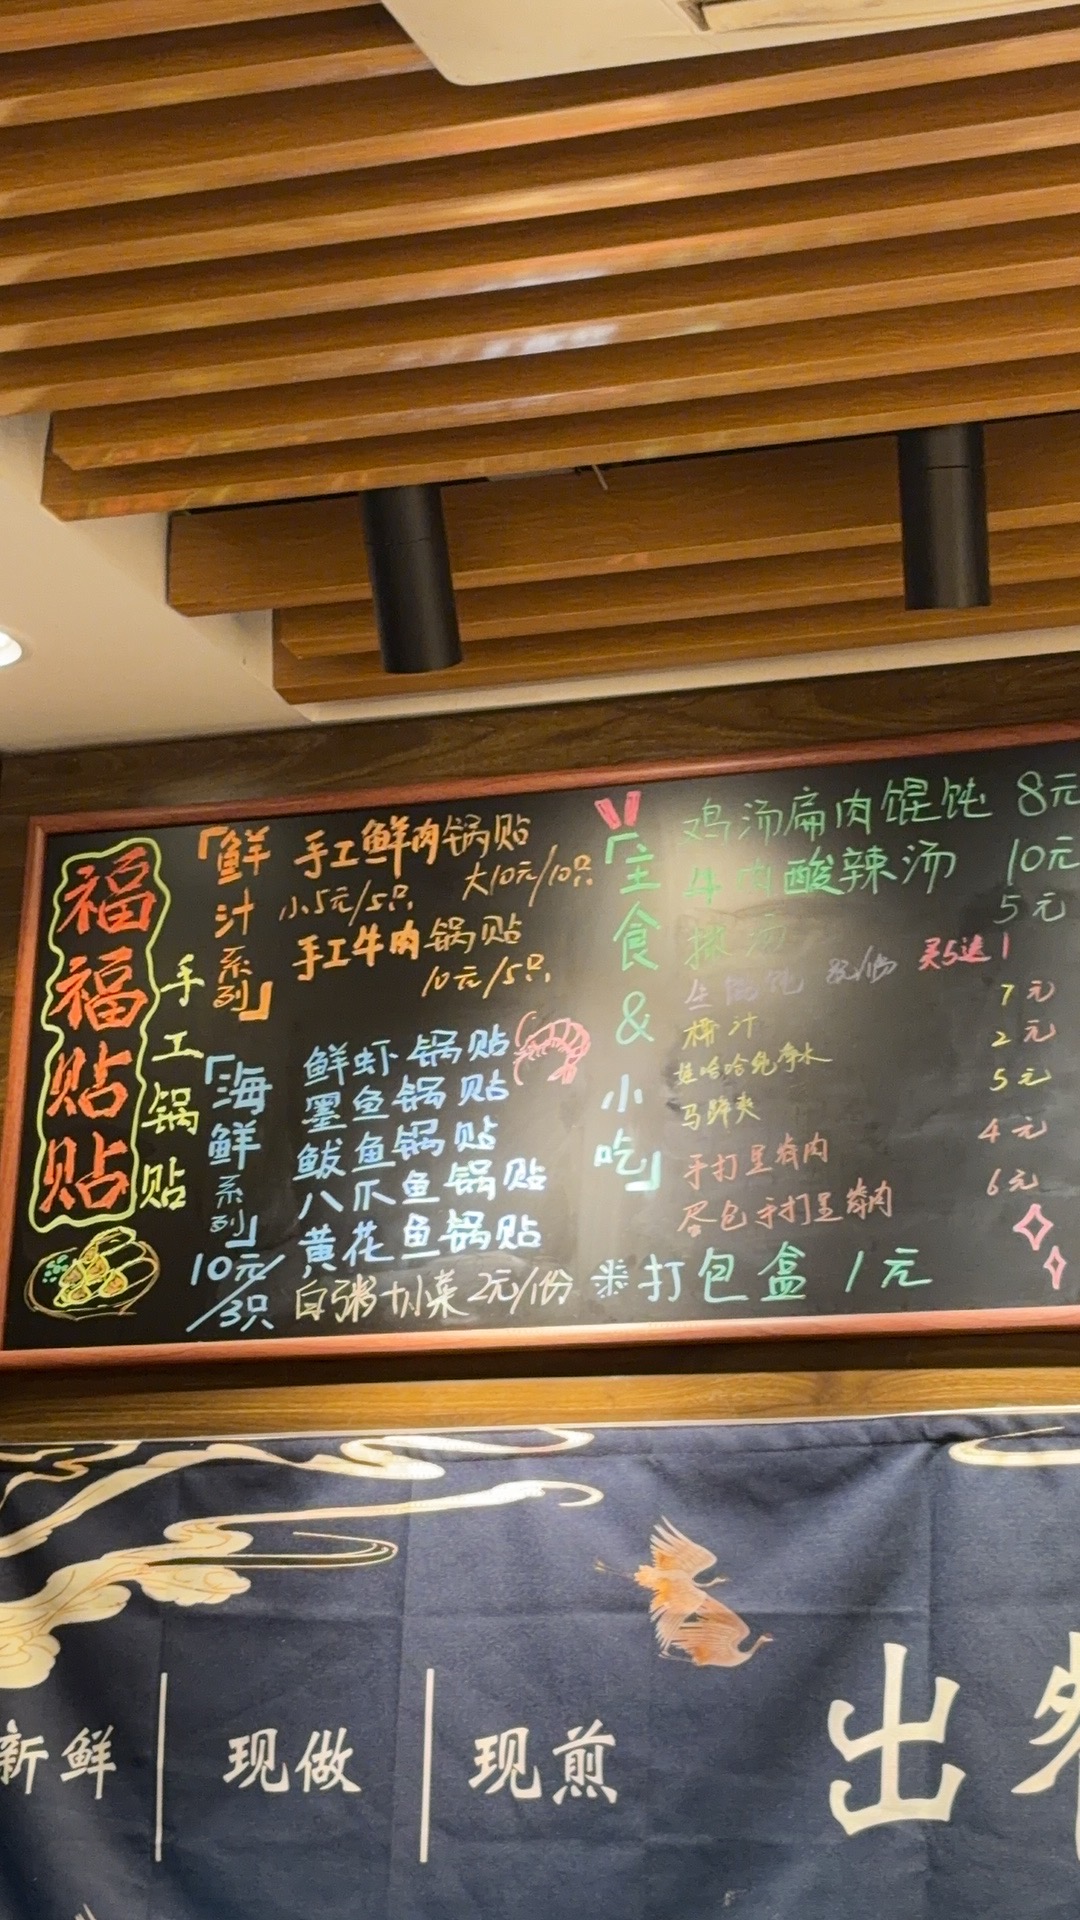 福福贴贴
手工锅贴
「鲜汁系列」
手工鲜肉锅贴
小5元/5只, 大10元/10只
手工牛肉锅贴
10元/5只,
「海鲜系列」
10元/
/3只
鲜虾锅贴
墨鱼锅贴
鲅鱼锅贴
八爪鱼锅贴
黄花鱼锅贴
白粥+小菜2元/份
「主食&小吃」
鸡汤扁肉馄饨 8元
牛肉酸辣汤 10元
汤 5元
生馄饨 买5送1
汁 7元
娃哈哈纯净水 2元
马蹄爽 5元
手打 肉 4元
蛋包手打 肉 6元
打包盒 1元
新鲜 | 现做 | 现煎
出